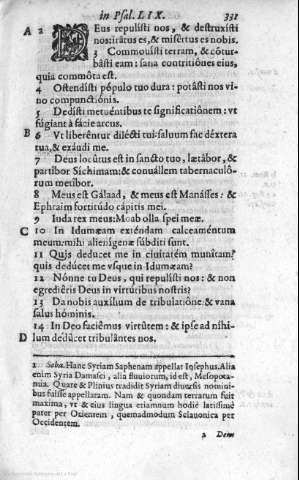 in Psal. LIX. 331
A 2 DEus repulisti nos, & destruxisti
nos: irâtus es, & misértus es nobis.
3 Commovísti terram, & cōtur-
básti eam: sana contritiônes eius,
quia commôta est.
4 Ostendísti pópulo tuo dura: potásti nos vi-
no compunctiónis.
5 Dedísti metuéntibus te significatiônem: vt
fúgiant à fácie arcus.
B 6 Vt liberêntur dilécti tui: saluum fac déxtera
tua, & exáudi me.
7 Deus locûtus est in sancto tuo, lætábor, &
partíbor Síchimam: & conuállem tabernaculô-
rum metíbor.
8 Meus est Gálaad, & meus est Manásses: &
Ephraim fortitúdo cápitis mei.
9 Iuda rex meus: Moab olla spei meæ.
C 10 In Idumæam exténdam calceaméntum
meum: mihi alienígenæ súbditi sunt.
11 Quis deducet me in ciuitatém munîtam?
quis deducet me vsque in Idumæam?
12 Nónne tu Deus, qui repulísti nos: & non
egrediéris Deus in virtútibus nostris?
13 Da nobis auxílium de tribulatióne: & vana
salus hóminis.
14 In Deo faciêmus virtûtem: & ipse ad níhi-
D lum dedûcet tribulántes nos.
1 Soba. Hanc Syriam Saphenam appellat Iosephus. Alia
enim Syria Damasci, alia fluuiorum, id est, Mesopota-
mia. Quare & Plinius tradidit Syriam diuersis nomini-
bus fuisse appellaram. Nam & quondam terrarum fuit
maxima, vt & eius lingua etiamnum hodie latissimè
patet per Orientem, quemadmodum Sclauonica per
Occidentem.
2 Dem